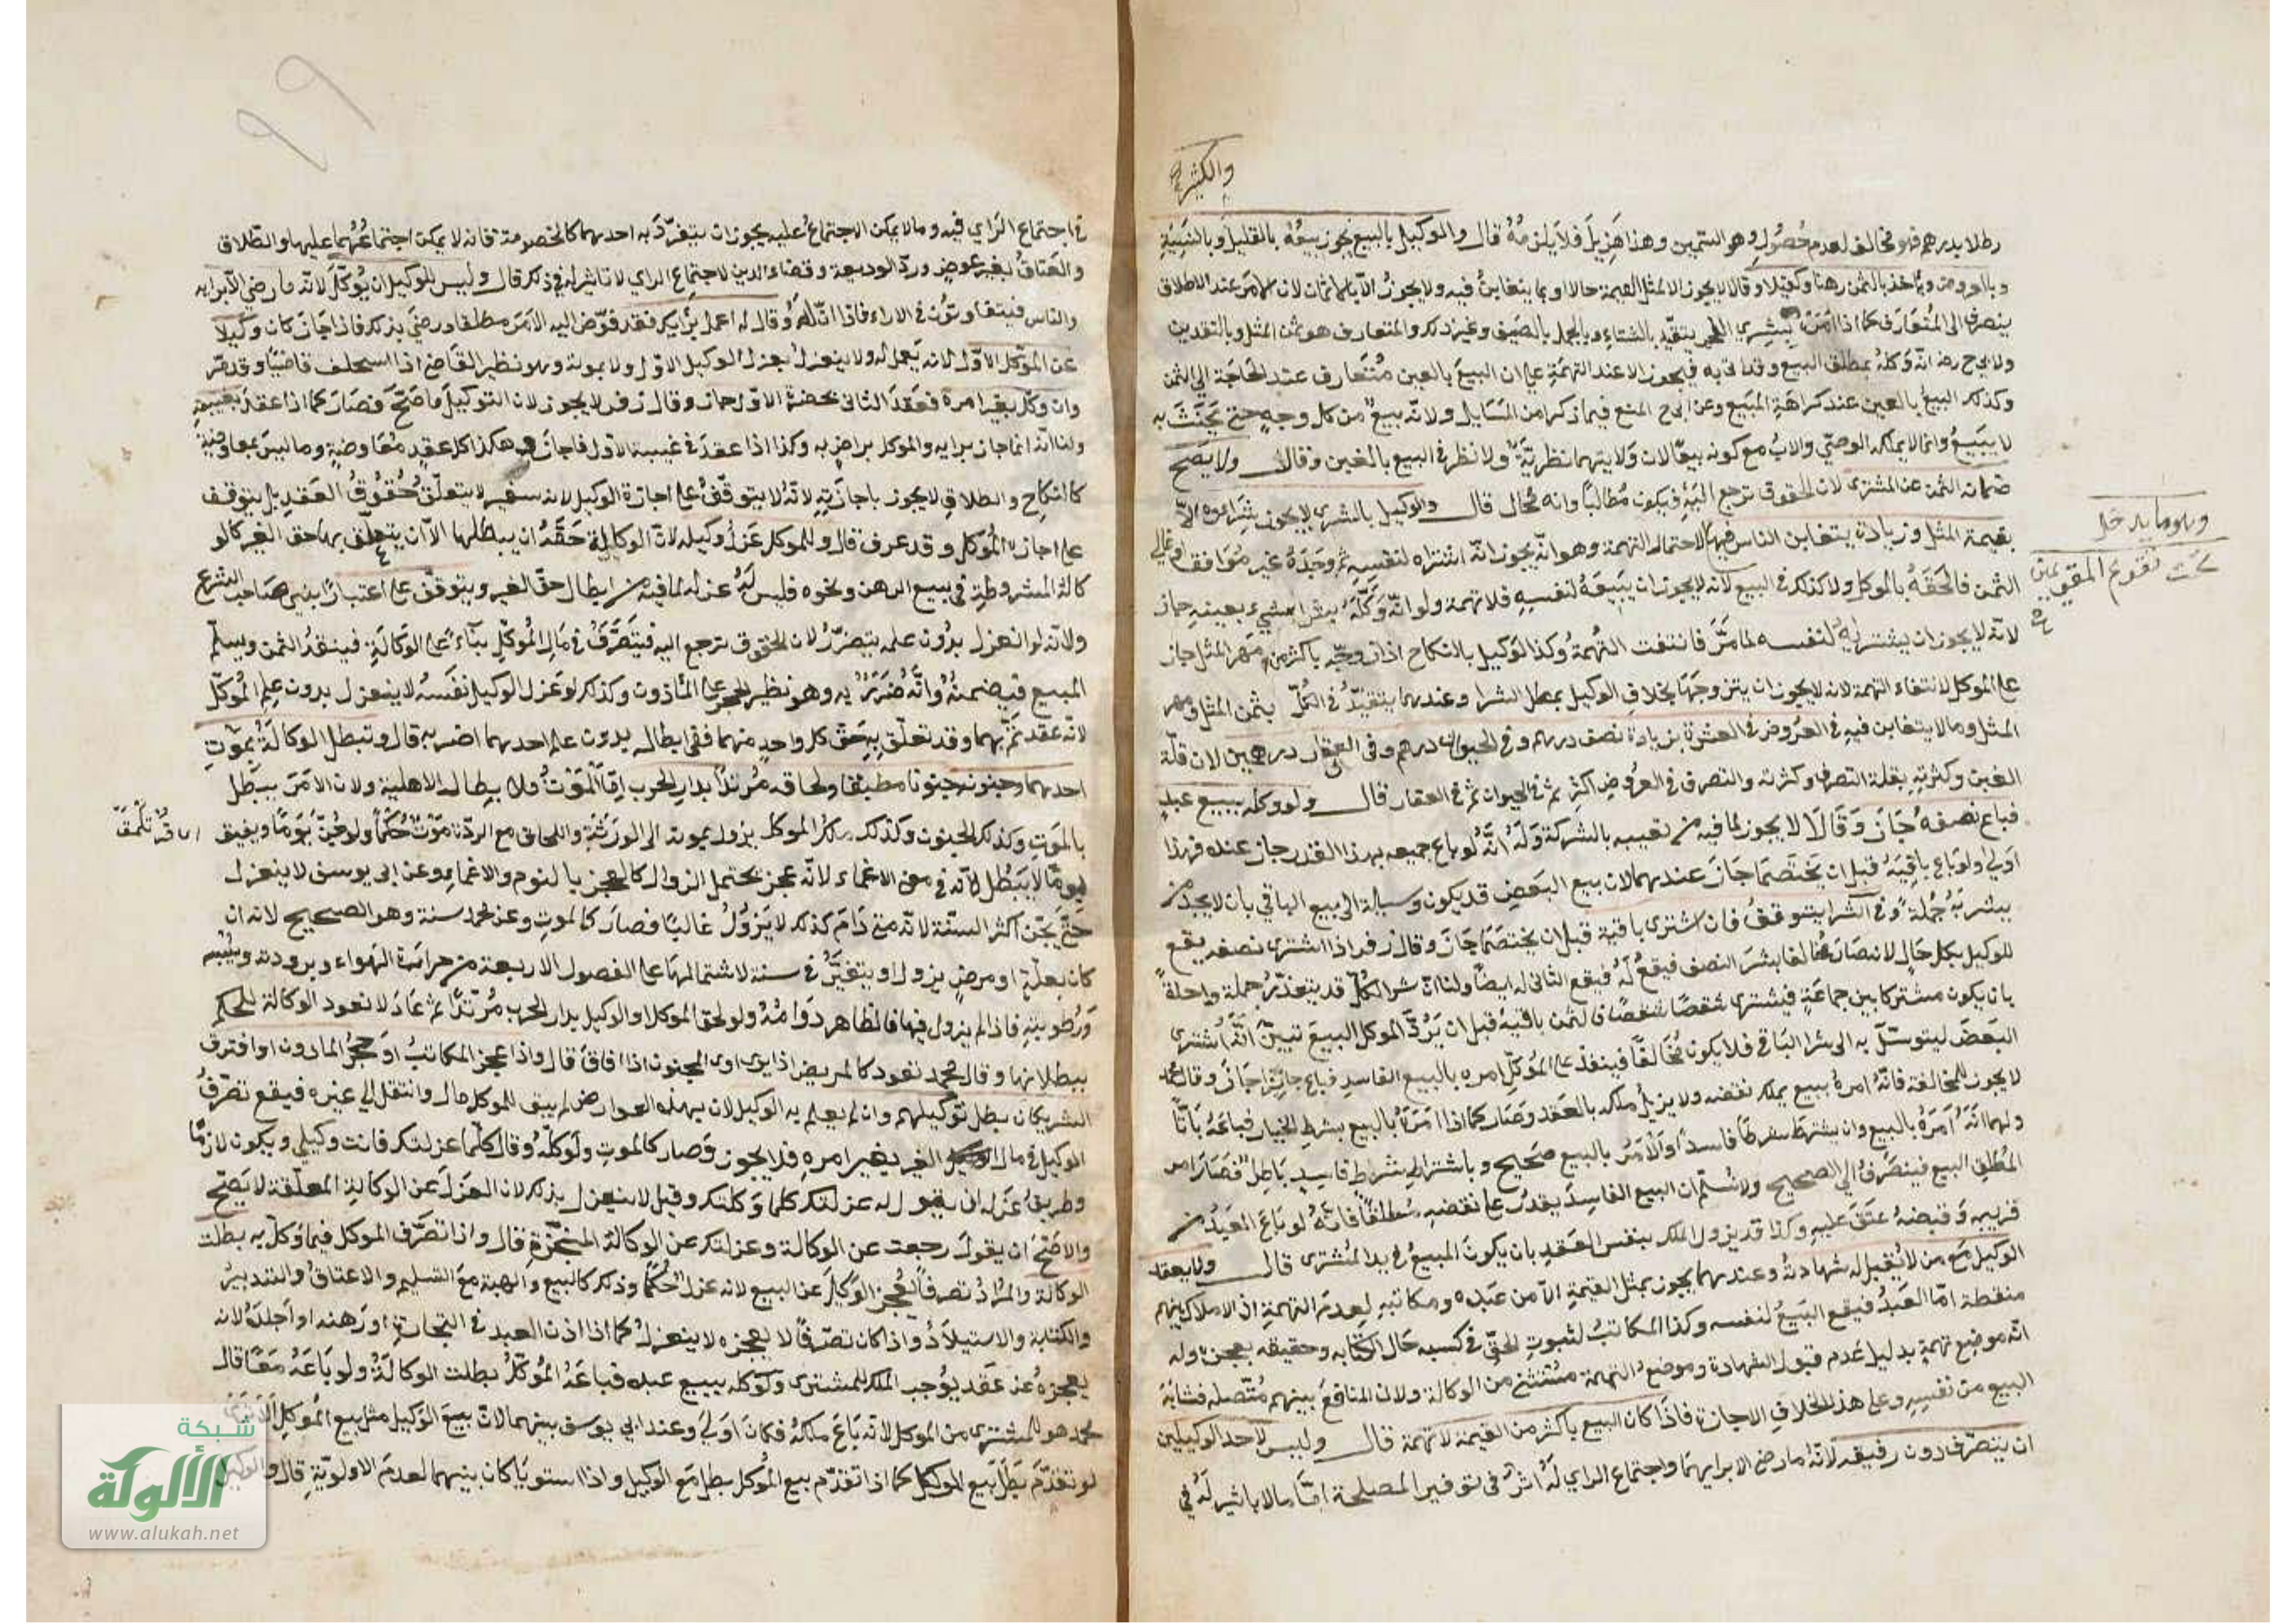 والكثير
رطلا بدرهم فهو مخالف لعدم حصوله وهو السمين وهذا هزيل فلا يلزمه قال والوكيل بالبيع يجوز بيعه بالقليل وبالنسيئة
وبالعروض ويأخذ بالثمن رهنا وكفيلا وقالا لا يجوز الا بمثل القيمة حالا او بما يتغابن فيه ولا يجوز الا بالاثمان لان الامر عند الاطلاق
ينصرف الى المتعارف كما اذا امر بشرى الفحم يتقيد بالشتاء وبالجمد بالصيف وغير ذلك والمتعارف هو ثمن المثل وبالنقدين
ولابي ح رضه انه وكله بمطلق البيع وقد اتى به فيجوز الا عند التهمة على ان البيع بالعين متعارف عند الحاجة الى الثمن
وكذلك البيع بالعين عند كراهة المبيع وعن ابي ح المنع فيما ذكر من المسايل ولانه بيع من كل وجه حتى يحنث به
لا يبيع وانما لا يملكه الوصي والاب مع كونه بيعا لان ولايتهما نظرية ولا نظر في البيع بالغبن وقالا ولا يصح
ضمانه الثمن عن المشترى لان الحقوق ترجع اليه فيكون مطالبا وانه محال قال والوكيل بالشرى لا يجوز شراءوه الا
بقيمة المثل وزيادة يتغابن الناس فيها لاحتمال التهمة وهو انه يجوز انه اشتراه لنفسه ثم وجده غير موافق او غالي
وهو ما يدخل
تحت تقويم المقومين
الثمن فالحقه بالموكل ولا كذلك في البيع لانه لا يجوز ان يبيعه لنفسه فلا تهمة ولو انه وكله بشرا شيء بعينه جاز
لانه لا يجوز ان يشتريه لنفسه لما مر فانتفت التهمة وكذا الوكيل بالنكاح اذا زوجه باكثر من مهر المثل جاز
على الموكل لانتفاء التهمة لانه لا يجوز ان يتزوجها بخلاف الوكيل بمطلق الشرا وعندهما يتقيد في الكل بثمن المثل ومهر
المثل وما لا يتغابن فيه في العروض في العشرة بزيادة نصف درهم وفي الحيوان درهم وفي العقار درهمين لان قلة
الغبن وكثرته بقلة التصرف وكثرته والتصرف في العروض اكثر ثم في الحيوان ثم في العقار قال ولو وكله ببيع عبد
فباع نصفه جاز وقالا لا يجوز لما فيه من تعييبه بالشركة وله انه لو باع جميعه بهذا القدر جاز عنده فهذا
اولى ولو باع باقيه قبل ان يختصما جاز عندهما لان بيع البعض قد يكون وسيلة الى بيع الباقي بان لا يجد من
يشتريه جملة وفي الشرا يتوقف فان اشترى باقيه قبل ان يختصما جاز وقال زفر اذا اشترى نصفه يقع
للوكيل بكل حال لانه صار مخالفا بشرا النصف فيقع له فيقع الثاني له ايضا ولنا ان شرا الكل قد يتعذر جملة واحدة
بان يكون مشتركا بين جماعة فيشترى شقصا شقصا فان اشترى باقيه قبل ان يرد الموكل البيع تبين انه اشترى
البعض ليتوسل به الى شرا الباقي فلا يكون مخالفا فينفذ على الموكل امره بالبيع الفاسد فباع جايزا جاز وقال محمد
لا يجوز للمخالفة فانه امره ببيع يملك نقضه ولا يزيل ملكه بالعقد وصار كما اذا امره بالبيع بشرط الخيار فباعه باتا
ولهما انه امره بالبيع وان يشترط شرطا فاسدا والامر بالبيع صحيح وباشتراط شرط فاسد باطل فصار امر
المطلق البيع فينصرف الى الصحيح ولا نسلم ان البيع الفاسد يقدر على نقضه مطلقا فانه لو باع العبد من
قريبه وقبضه عتق عليه وكذا قد يزول الملك بنفس العقد بان يكون المبيع في يد المشترى قال ولا يعقد
الوكيل مع من لا تقبل له شهادته وعندهما يجوز بمثل القيمة الا من عبده ومكاتبه لعدم التهمة اذ الاملاك بينهم
منقطعة اما العبد فيقع البيع لنفسه وكذا المكاتب لثبوت الحق في كسبه حال الكتابة وحقيقه بعجزه وله
انه موضع تهمة بدليل عدم قبول الشهادة وموضع التهمة مستثنى من الوكالة ولان المنافع بينهم متصله فشابه
البيع من نفسه وعلى هذا الخلاف الاجازة فاذا كان البيع باكثر من القيمة لا تهمة قال وليس لاحد الوكيلين
ان يتصرف دون رفيقه لانه ما رضى الا برايهما واجتماع الراي له اثر في توفير المصلحة اما ما لا تاثير له في
٩٩
في اجتماع الراي فيه وما لا يمكن الاجتماع عليه يجوز ان يتفرد به احدهما كالخصومة فانه لا يمكن اجتماعهما عليها والطلاق
والعتاق بغير عوض ورد الوديعة وقضاء الدين لاجتماع الراي لا تاثير له في ذلك قال وليس للوكيل ان يوكل لانه ما رضي الا برايه
والناس يتفاوتون في الاراء فاذا اذن له وقال له اعمل برايك فقد فوض اليه الامر مطلقا ورضي بذلك فاذا جاز كان وكيلا
عن الموكل الاول لانه يعمل له ولا ينعزل بعزل الوكيل الاول ولا بموته وهو نظير القاضي اذا استخلف قاضيا وقد مر
وان وكل بغير امره فعقد الثاني بحضرة الاول جاز وقال زفر لا يجوز لان التوكيل ما صح فصار كما اذا عقد بغيبته
ولنا انه انما جاز برايه والموكل براض به وكذا اذا عقد في غيبة الاول فاجازه هكذا كل عقد معاوضة وما ليس بمعاوضة
كالنكاح والطلاق لا يجوز باجازته لانه لا يتوقف على اجازة الوكيل لانه سفير لا يتعلق حقوق العقد بل يتوقف
على اجازة الموكل وقد عرف قال وللموكل عزل وكيله لان الوكالة حقه ان يبطلها الا ان يتعلق بها حق الغير كالو
كالة المشروطة في بيع الرهن ونحوه فليس له عزله لما فيه من ابطال حق الغير ويتوقف على اعتبارا بنهي صاحب الشرع
ولانه لو انعزل بدون علمه يتضرر لان الحقوق ترجع اليه فيتصرف في مال الموكل بناء على الوكالة فينقد الثمن ويسلم
المبيع فيضمنه وانه ضرر به وهو نظير الحجر على الماذون وكذلك لو عزل الوكيل نفسه لا ينعزل بدون علم الموكل
لانه عقد تم بهما وقد تعلق به حق كل واحد منهما ففي ابطاله بدون علم احدهما اضر به قال وتبطل الوكالة بموت
احدهما وجنونه جنونا مطبقا ولحاقه مرتدا بدار الحرب اما الموت فلا بطال الاهلية ولان الامر يبطل
بالموت وكذلك الجنون وكذلك ملك الموكل يزول بموته الى الورثة واللحاق مع الردة موت حكما ولو جن يوما ويفيق
يوما لا يبطل لانه في معنى الاغماء لانه عجز يحتمل الزوال كالعجز بالنوم والاغماء وعن ابي يوسف لا ينعزل
حتى يجن اكثر السنة لانه متى دام كذلك لا يزول غالبا فصار كالموت وعن محمد سنة وهو الصحيح لانه ان
كان بعلة او مرض يزول او يتغير في سنة لاشتمالها على الفصول الاربعة من حرارة الهواء وبرودته ويبسه
ورطوبته فاذا لم يزول فيها فالظاهر دوامه ولو لحق الموكل او الوكيل بدار الحرب مرتدا ثم عاد لا تعود الوكالة للحكم
ببطلانها وقال محمد تعود كالمريض اذا برى او المجنون اذا افاق قال واذا عجز المكاتب او حجر الماذون او افترق
الشريكان بطل توكيلهم وان لم يعلم به الوكيل لان بهذه العوارض لم يبق للموكل مال وانتقل الى غيره فيقع تصرف
الوكيل في مال الغير بغير امره فلا يجوز وصار كالموت ولو كله وقال كلما عزلتك فانت وكيلي ويكون لازما
وطريق عزله ان يقول له عزلتك كلما وكلتك وقيل لا ينعزل بذلك لان العزل عن الوكالة المعلقة لا يصح
والاصح ان يقول رجعت عن الوكالة وعزلتك عن الوكالة المنجزة قال واذا تصرف الموكل فيما وكل به بطلت
الوكالة والمراد تصرفا يعجز الوكيل عن البيع لانه عزل حكما وذلك كالبيع والهبة مع التسليم والاعتاق والتدبير
والكتابة والاستيلاد واذا كان تصرفا لا يعجزه لا ينعزل كما اذا اذن العبد في التجارة او رهنه او اجله لانه
يعجزه عن عقد يوجب الملك للمشترى ولو وكله ببيع عبده فباعه الموكل بطلت الوكالة ولو باعه معا قال
محمد هو للمشترى من الموكل لانه باع ملكه فكان اولى وعند ابي يوسف بينهما لان بيع الوكيل مثل بيع الموكل
لو تقدم بطل بيع الموكل كما اذا تقدم بيع الموكل بطل مع الوكيل واذا استويا كان بينهما لعدم الاولوية قال والوكيل
شبكة
الألوكة
www.alukah.net